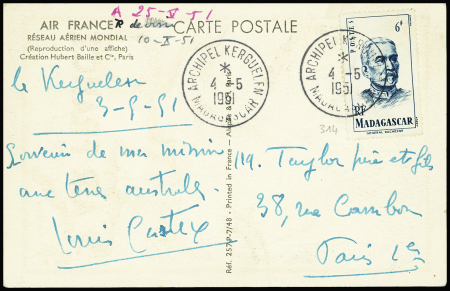 AIR FRANCE
RÉSEAU AÉRIEN MONDIAL
(Reproduction d'une affiche)
Création Hubert Baille et Cie, Paris
A 25-X-51
R de
10-X-51
CARTE POSTALE
ARCHIPEL KERGUELEN
4-5
1951
MADAGASCAR
ARCHIPEL KERGUELEN
4-5
1951
MADAGASCAR
POSTES
6F
RF
MADAGASCAR
314
les Kerguelen
3-5-51
Souvenir de ma mission
aux terres australes
Louis Castex
Réf. 257 P-7/48 - Printed in France -
M. Taylor père et fils
38, rue Cambon
Paris 1er